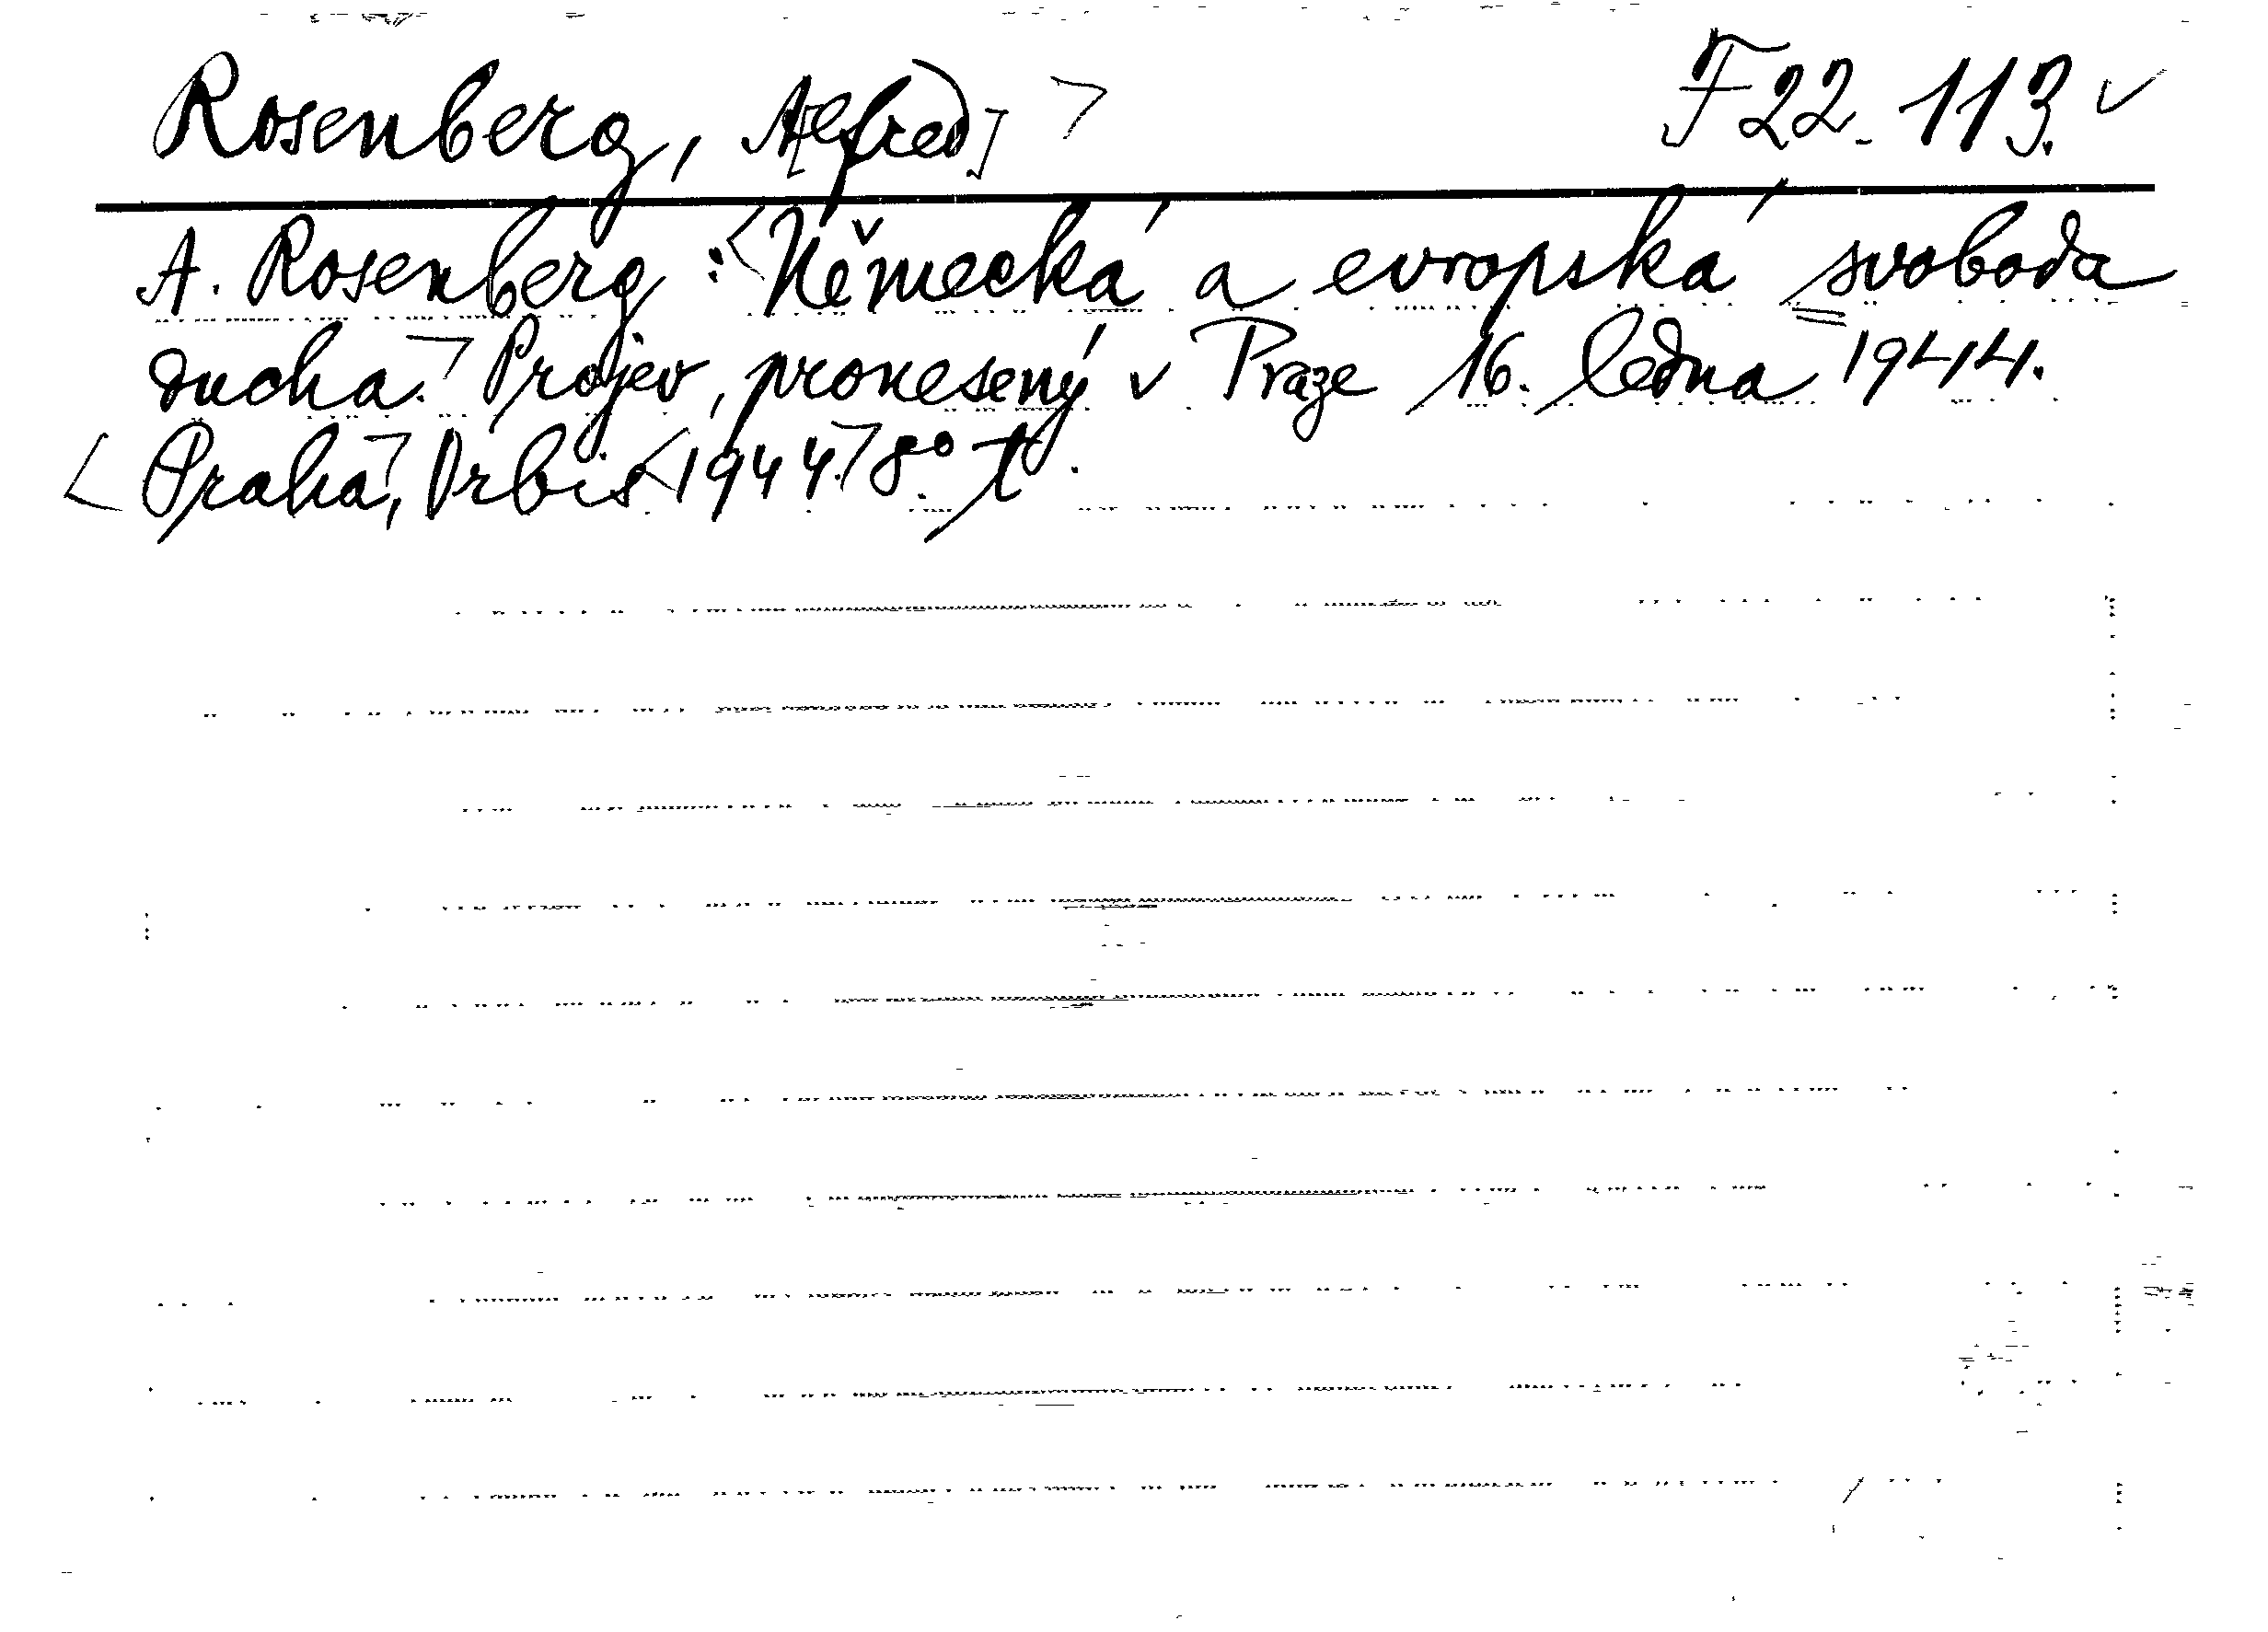 Rosenberg, A[lfred] > F 22. 113. ✓
A. Rosenberg : <Německá a evropská svoboda
ducha.> Projev, pronesený v Praze 16. ledna 1944.
<Praha>, Orbis <1944.> 8°.